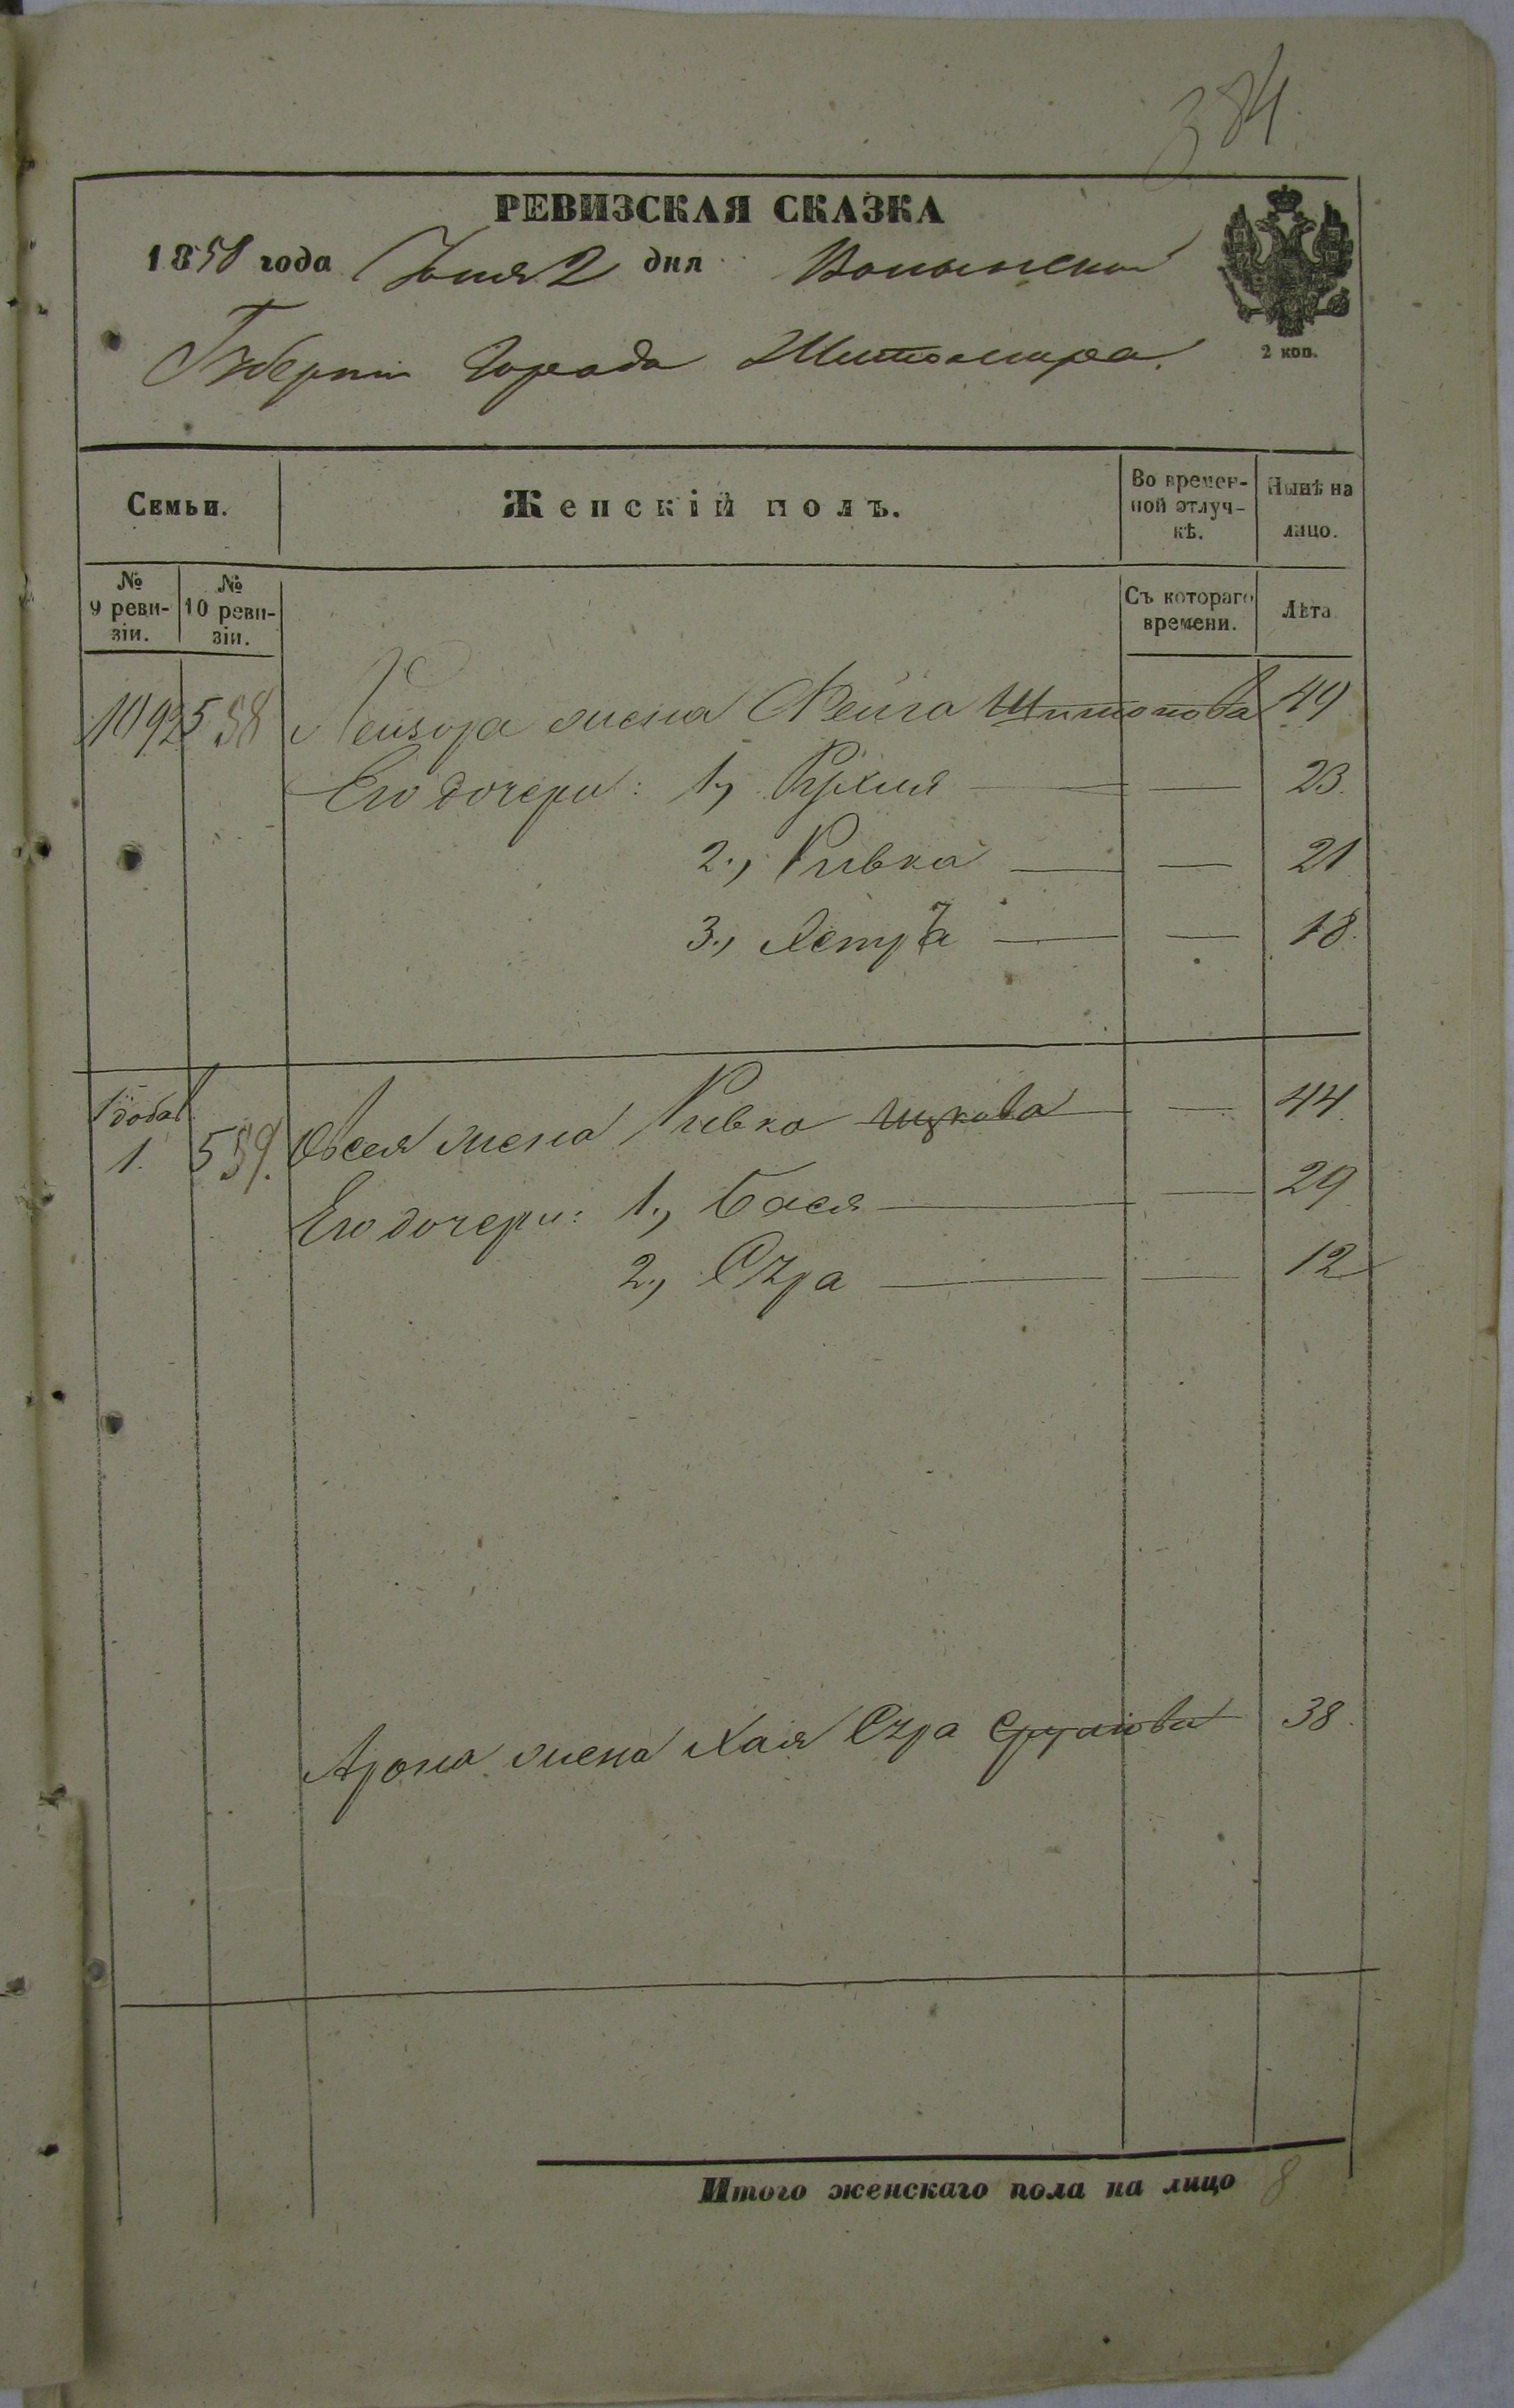 384.
РЕВИЗСКАЯ СКАЗКА
1858 года Июня 2 дня Волынской
Губерніи Города Житомира.
2 коп.
Семьи.
Женскій полъ.
Во времен-
ной отлуч-
кѣ.
Нынѣ на
лицо.
№
9 реви-
зіи.
№
10 реви-
зіи.
Съ котораго
времени.
Лѣта
1092 558 Лейзора жена Фейга Шимонова 49
Его дочери: 1, Рухля — — 23.
2., Ривка — — 21
3., — — 18.
1 добав.
1. 559. Овсея жена Ривка Ицкова — 44.
Его дочери: 1., Бася — — 29
2., Сура — — 12
Арона жена Хая Сура Срулiова 38.
Итого женскаго пола на лицо 8